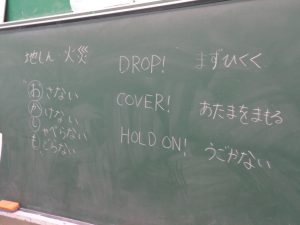 地しん 火災
おさない
かけない
しゃべらない
もどらない
DROP! まずひくく
COVER! あたまをまもる
HOLD ON! うごかない